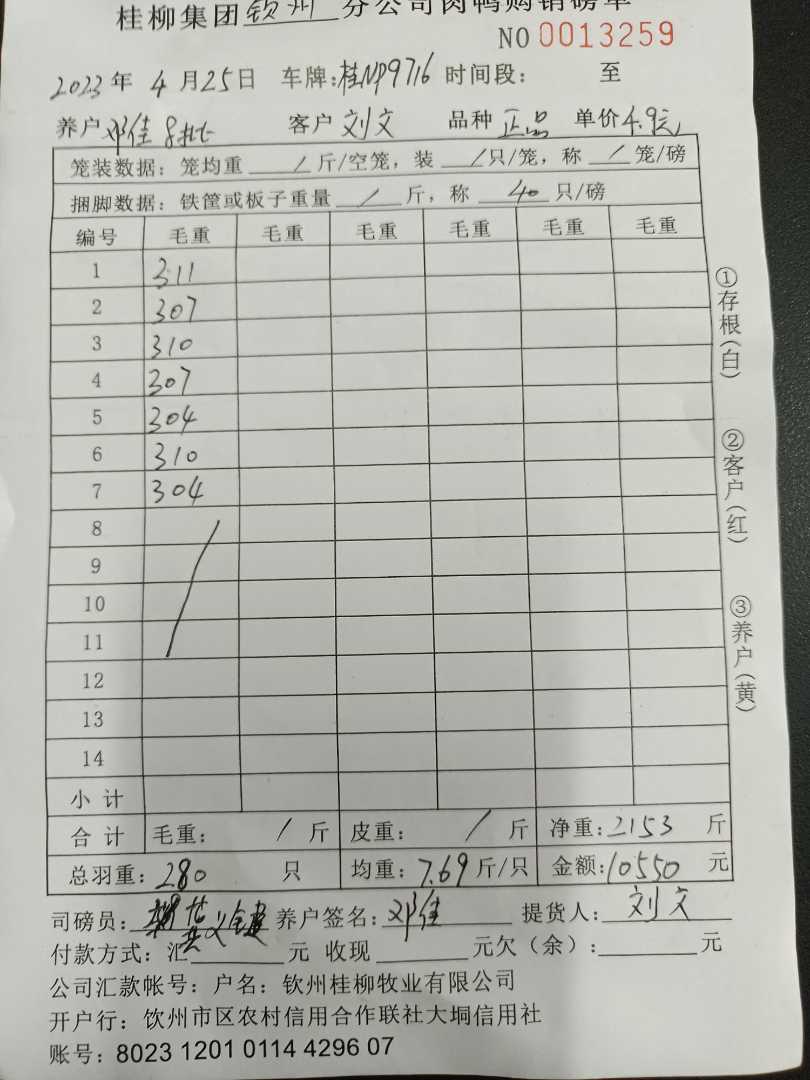 桂柳集团钦州分公司肉鸭购销磅单
NO 0013259
2023年 4月25日 车牌:桂NP9716 时间段: 至
养户 邓佳 8批 客户 刘文 品种 正品 单价4.9元
笼装数据: 笼均重 / 斤/空笼, 装 / 只/笼, 称 / 笼/磅
捆脚数据: 铁筐或板子重量 / 斤, 称 40 只/磅
编号 毛重 毛重 毛重 毛重 毛重 毛重
1 311
2 307
3 310
4 307
5 304
6 310
7 304
8
9
10
11
12
13
14
小计
合计 毛重: / 斤 皮重: / 斤 净重:2153 斤
总羽重: 280 只 均重: 7.69 斤/只 金额:10550 元
司磅员: 养户签名: 邓佳 提货人: 刘文
付款方式: 汇 元 收现 元欠(余): 元
公司汇款帐号: 户名: 钦州桂柳牧业有限公司
开户行: 钦州市区农村信用合作联社大垌信用社
账号: 8023 1201 0114 4296 07
①存根(白)
②客户(红)
③养户(黄)